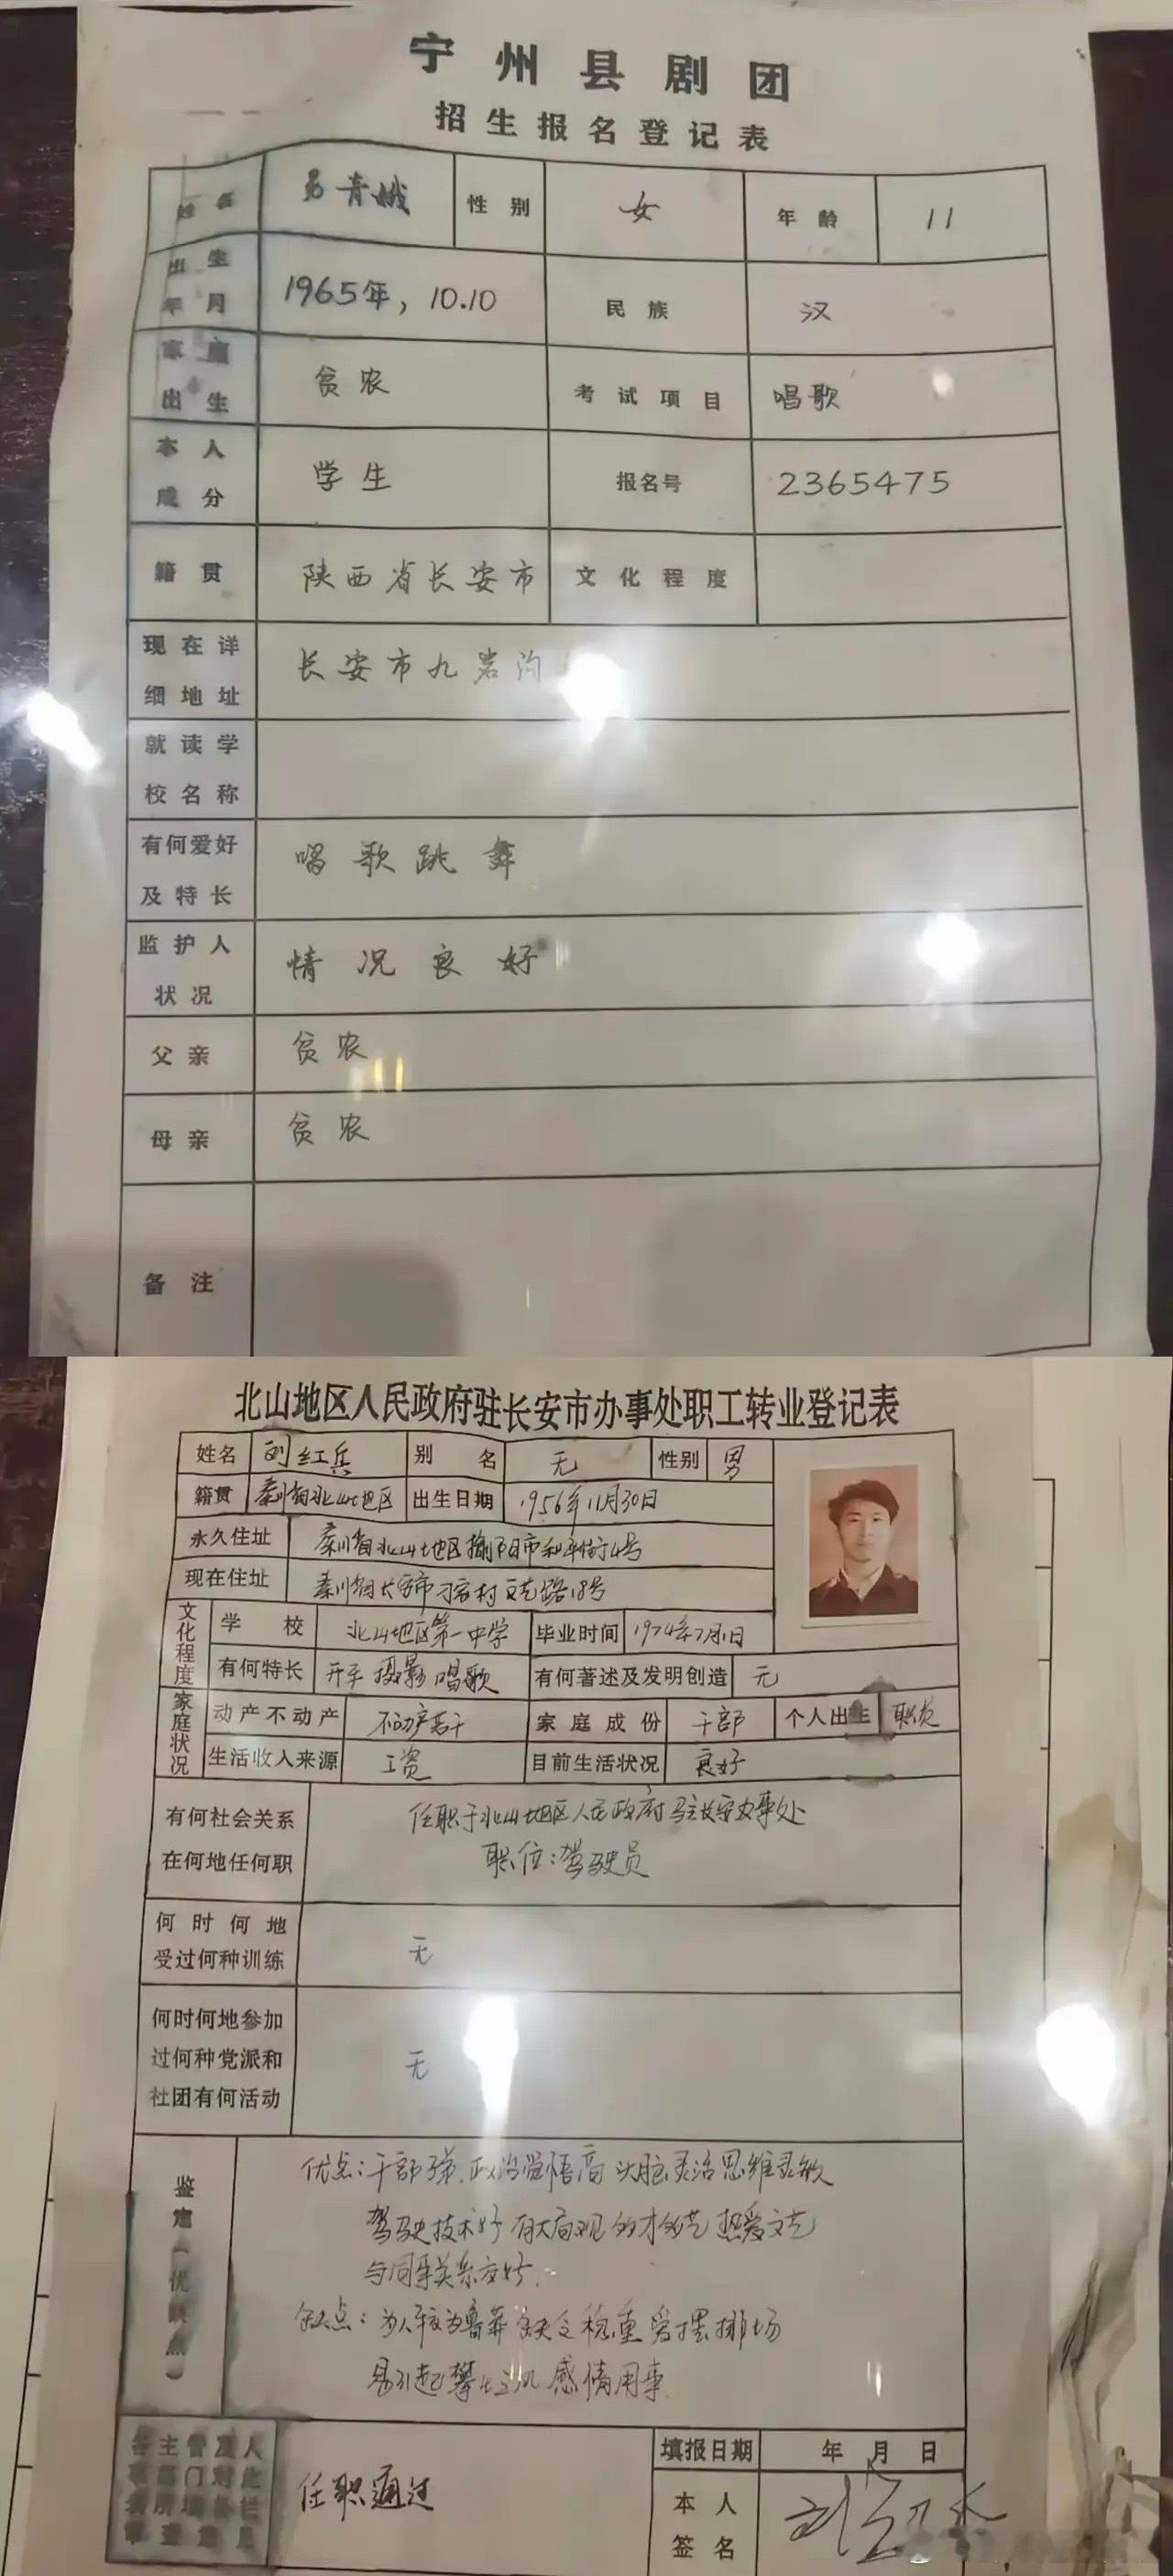 宁州县剧团
招生报名登记表
姓名 易青娥 性别 女 年龄 11
出生年月 1965年，10.10 民族 汉
家庭出生 贫农 考试项目 唱歌
本人成分 学生 报名号 2365475
籍贯 陕西省长安市 文化程度
现在详细地址 长安市九岩沟
就读学校名称
有何爱好及特长 唱歌跳舞
监护人状况 情况良好
父亲 贫农
母亲 贫农
备注
北山地区人民政府驻长安市办事处职工转业登记表
姓名 刘红兵 别名 无 性别 男
籍贯 秦川省北山地区 出生日期 1956年11月30日
永久住址 秦川省北山地区 市和平街4号
现在住址 秦川省长安市 村文艺路18号
文化程度 学校 北山地区第一中学 毕业时间 1974年7月1日
有何特长 开车 摄影 唱歌 有何著述及发明创造 无
家庭状况 动产不动产 不动产若干 家庭成份 干部 个人出生 职员
生活收入来源 工资 目前生活状况 良好
有何社会关系 任职于北山地区人民政府驻长安办事处
在何地任何职 职位：驾驶员
何时何地
受过何种训练 无
何时何地参加
过何种党派和 无
社团有何活动
鉴定（优缺点） 优点：干部子弟 政治觉悟高 头脑灵活 思维灵敏
驾驶技术好 有大局观 热爱文艺
与同事关系友好
缺点：为人较为鲁莽 缺乏稳重 爱摆排场
易引起攀比之风 感情用事
任职通过
填报日期 年 月 日
本人签名 刘红兵